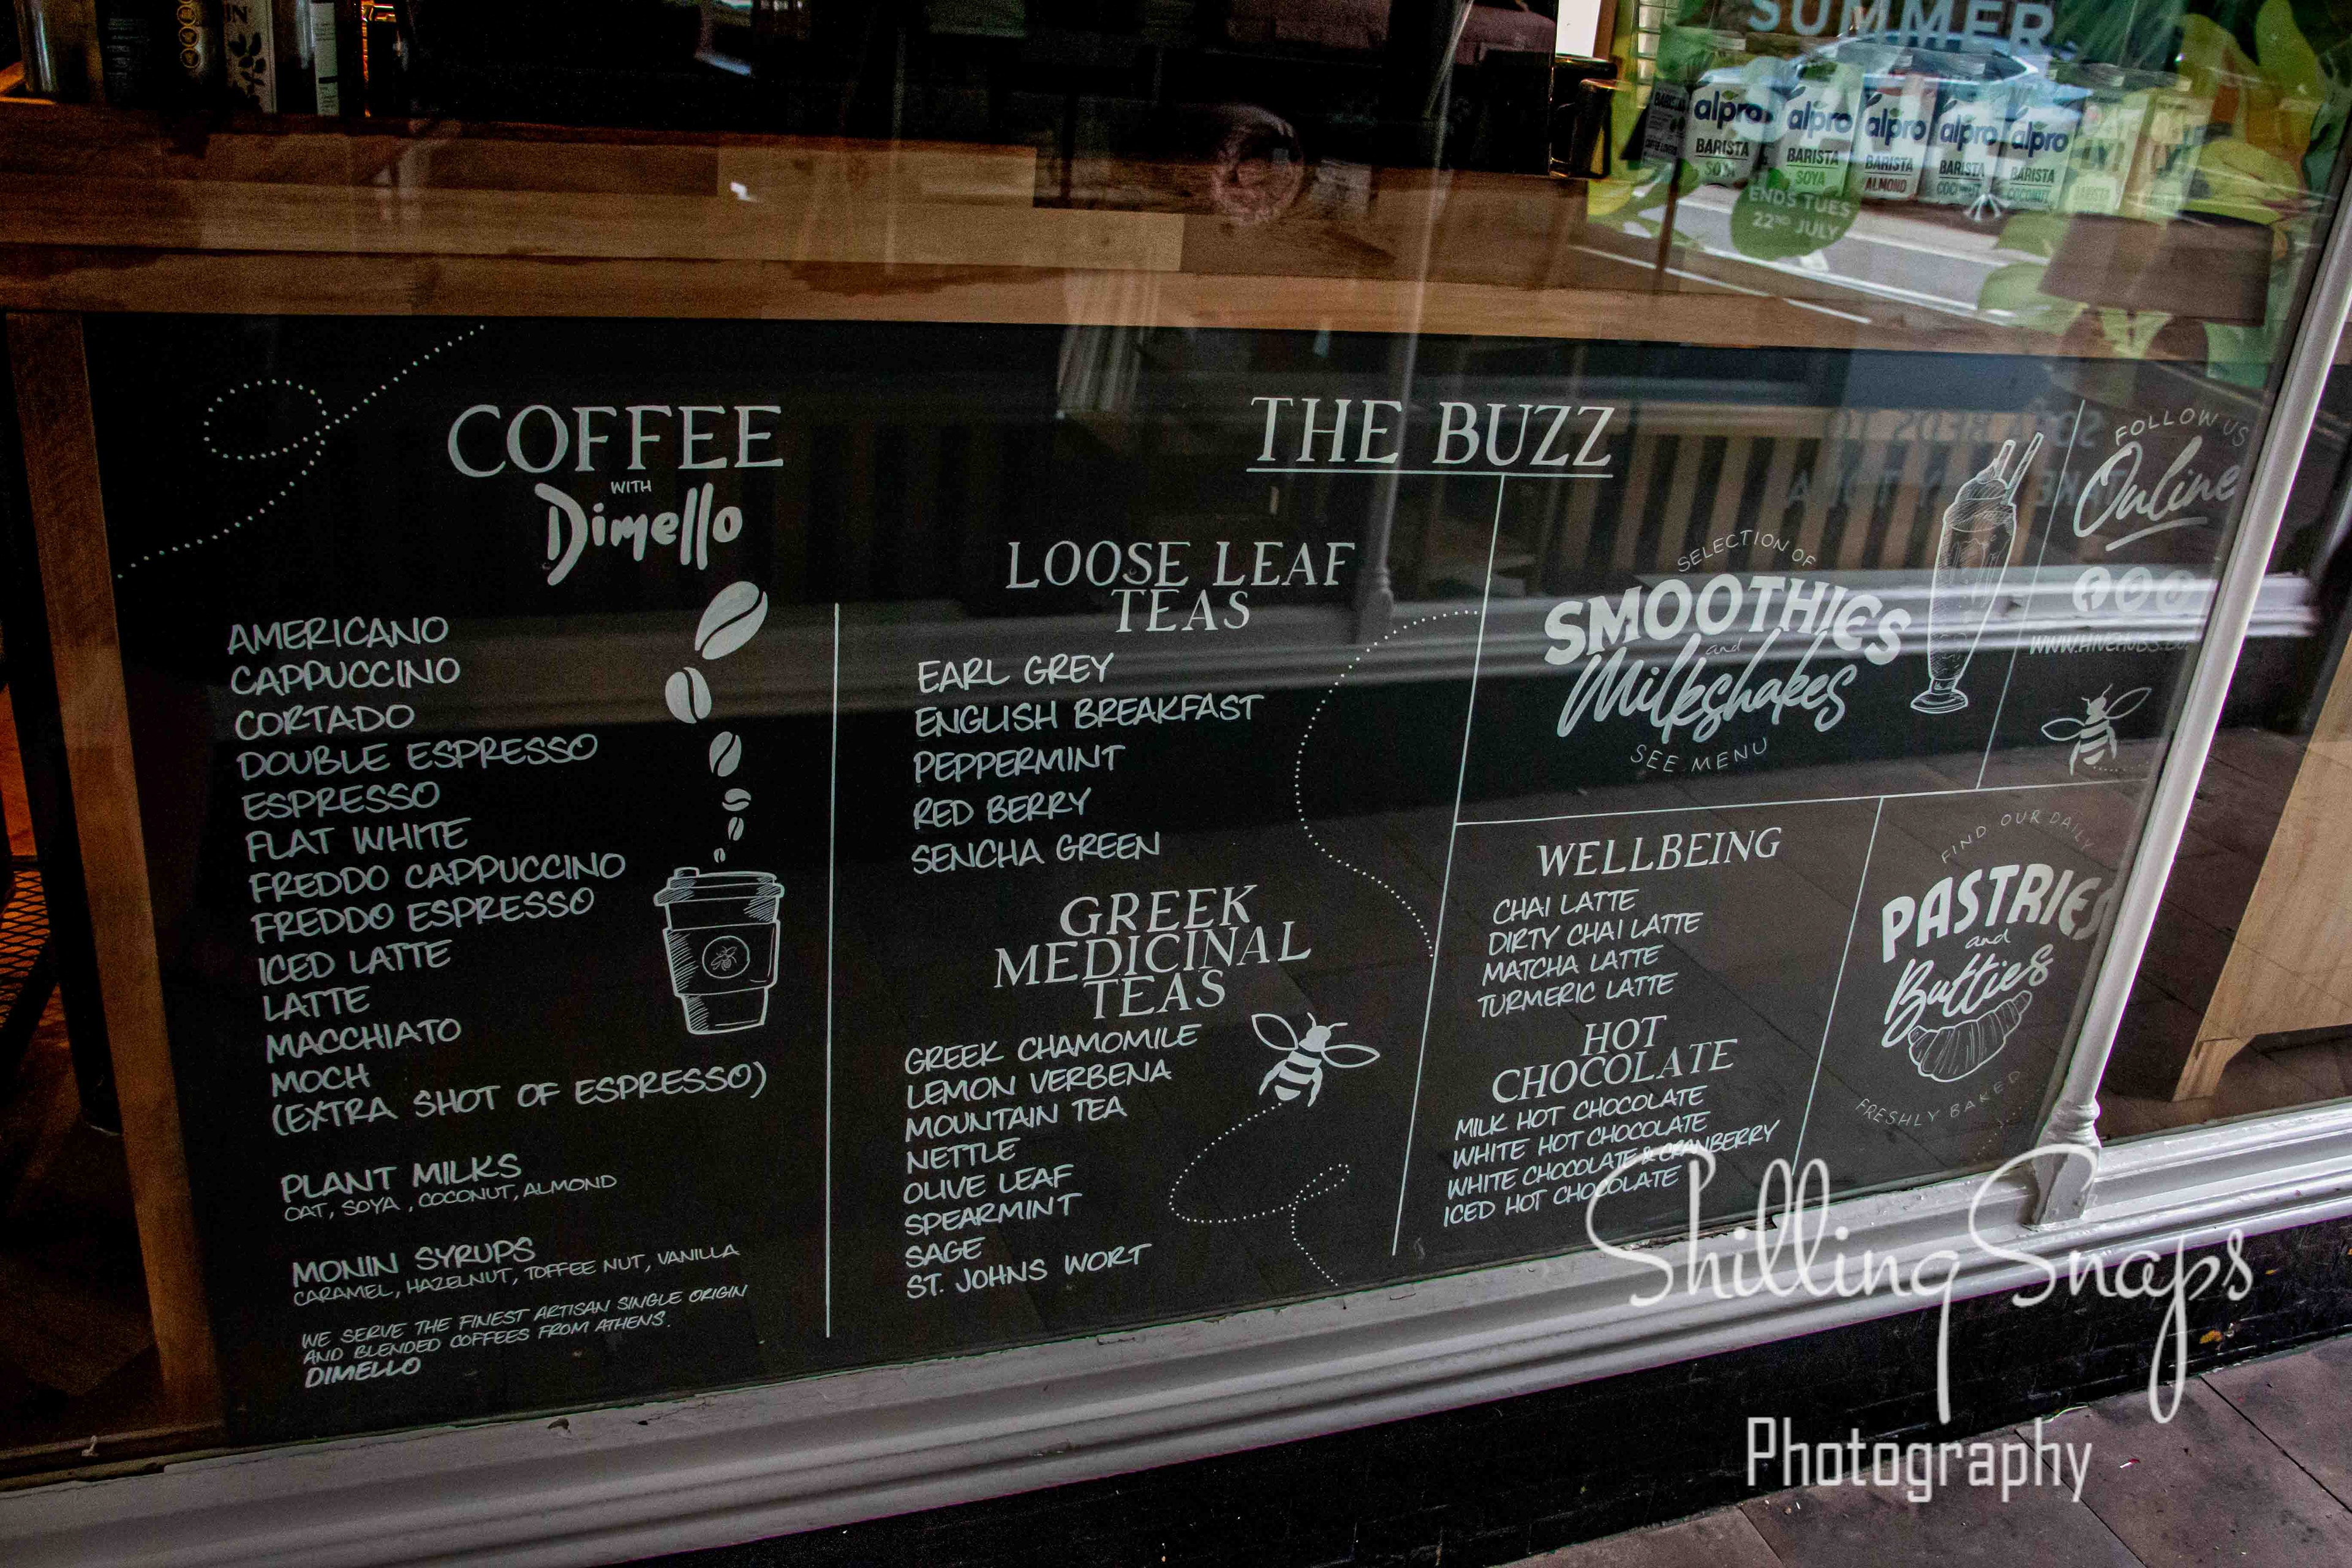 SUMMER
BARISTA
alpro
alpro
alpro
alpro
alpro
BARISTA
BARISTA
BARISTA
BARISTA
BARISTA
SOYA
SOYA
ALMOND
COCONUT
COCONUT
ENDS TUES
22ND JULY
COFFEE
WITH
Dimello
AMERICANO
CAPPUCCINO
CORTADO
DOUBLE ESPRESSO
ESPRESSO
FLAT WHITE
FREDDO CAPPUCCINO
FREDDO ESPRESSO
ICED LATTE
LATTE
MACCHIATO
MOCH
(EXTRA SHOT OF ESPRESSO)
PLANT MILKS
OAT, SOYA, COCONUT, ALMOND
MONIN SYRUPS
CARAMEL, HAZELNUT, TOFFEE NUT, VANILLA
WE SERVE THE FINEST ARTISAN SINGLE ORIGIN
AND BLENDED COFFEES FROM ATHENS.
DIMELLO
THE BUZZ
LOOSE LEAF
TEAS
EARL GREY
ENGLISH BREAKFAST
PEPPERMINT
RED BERRY
SENCHA GREEN
GREEK
MEDICINAL
TEAS
GREEK CHAMOMILE
LEMON VERBENA
MOUNTAIN TEA
NETTLE
OLIVE LEAF
SPEARMINT
SAGE
ST. JOHNS WORT
SELECTION OF
SMOOTHIES
and
Milkshakes
SEE MENU
FOLLOW US
Online
WELLBEING
CHAI LATTE
DIRTY CHAI LATTE
MATCHA LATTE
TURMERIC LATTE
HOT
CHOCOLATE
MILK HOT CHOCOLATE
WHITE HOT CHOCOLATE
WHITE CHOCOLATE & CRANBERRY
ICED HOT CHOCOLATE
FIND OUR DAILY
PASTRIES
and
Butties
FRESHLY BAKED
Shilling Snaps
Photography